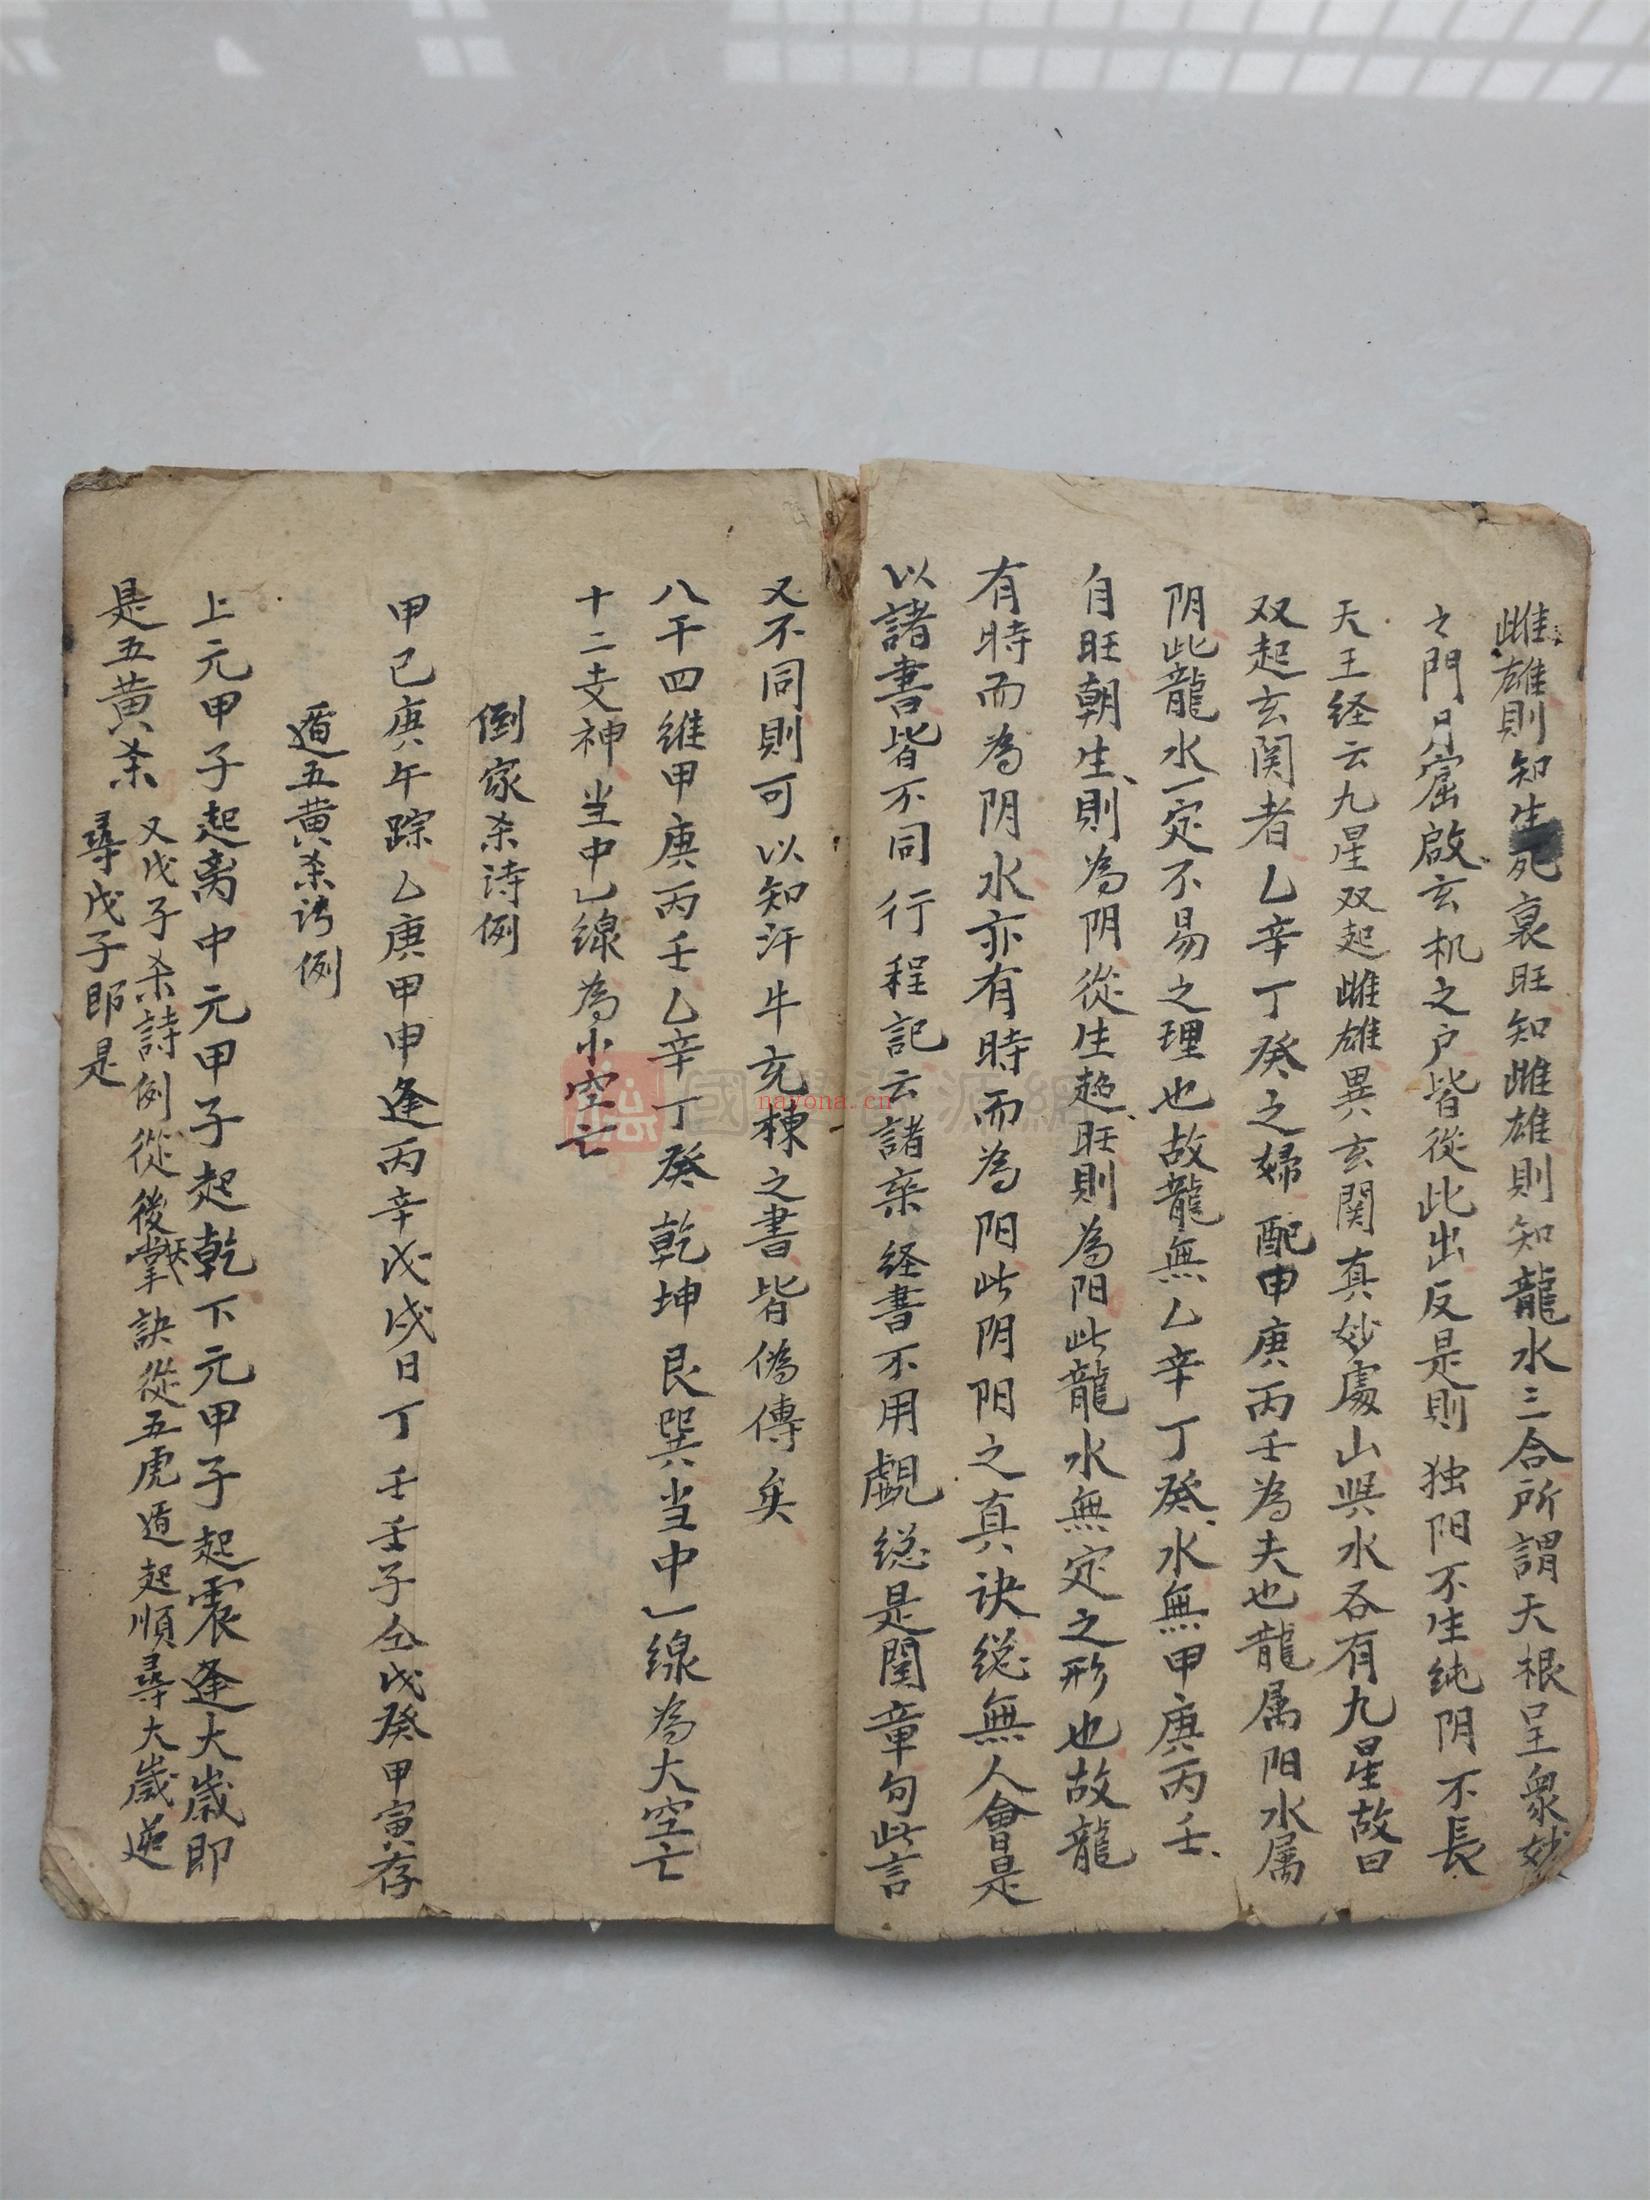 雌雄則知生死衰旺知雌雄則知龍水三合所謂天根呈衆妙
之門月窟啟玄机之户皆從此出反是則独阳不生純阴不長
天王经云九星双起雌雄異玄関真妙處山與水各有九星故曰
双起玄関者乙辛丁癸之婦配甲庚丙壬為夫也龍属阳水属
阴此龍水一定不易之理也故龍無乙辛丁癸水無甲庚丙壬
自旺朝生則為阴從生趋旺則為阳此龍水無定之形也故龍
有時而為阴水亦有時而為阳此阴阳之真诀総無人會是
以諸書皆不同行程記云諸家经書不用觑総是閏章句此言
又不同則可以知汗牛充棟之書皆偽傳矣
八干四维甲庚丙壬乙辛丁癸乾坤艮巽当中一線為大空亡
十二支神当中一線為小空亡
倒家杀诗例
甲己庚午踪乙庚甲申逢丙辛戊戌日丁壬壬子仝戊癸甲寅存
遁五黄杀诗例
上元甲子起离中元甲子起乾下元甲子起震逢大歲即
是五黄杀
又戊子杀詩例從後掌訣從五虎遁起順尋大歲逆
尋戊子即是
國學資源網
nayona.cn